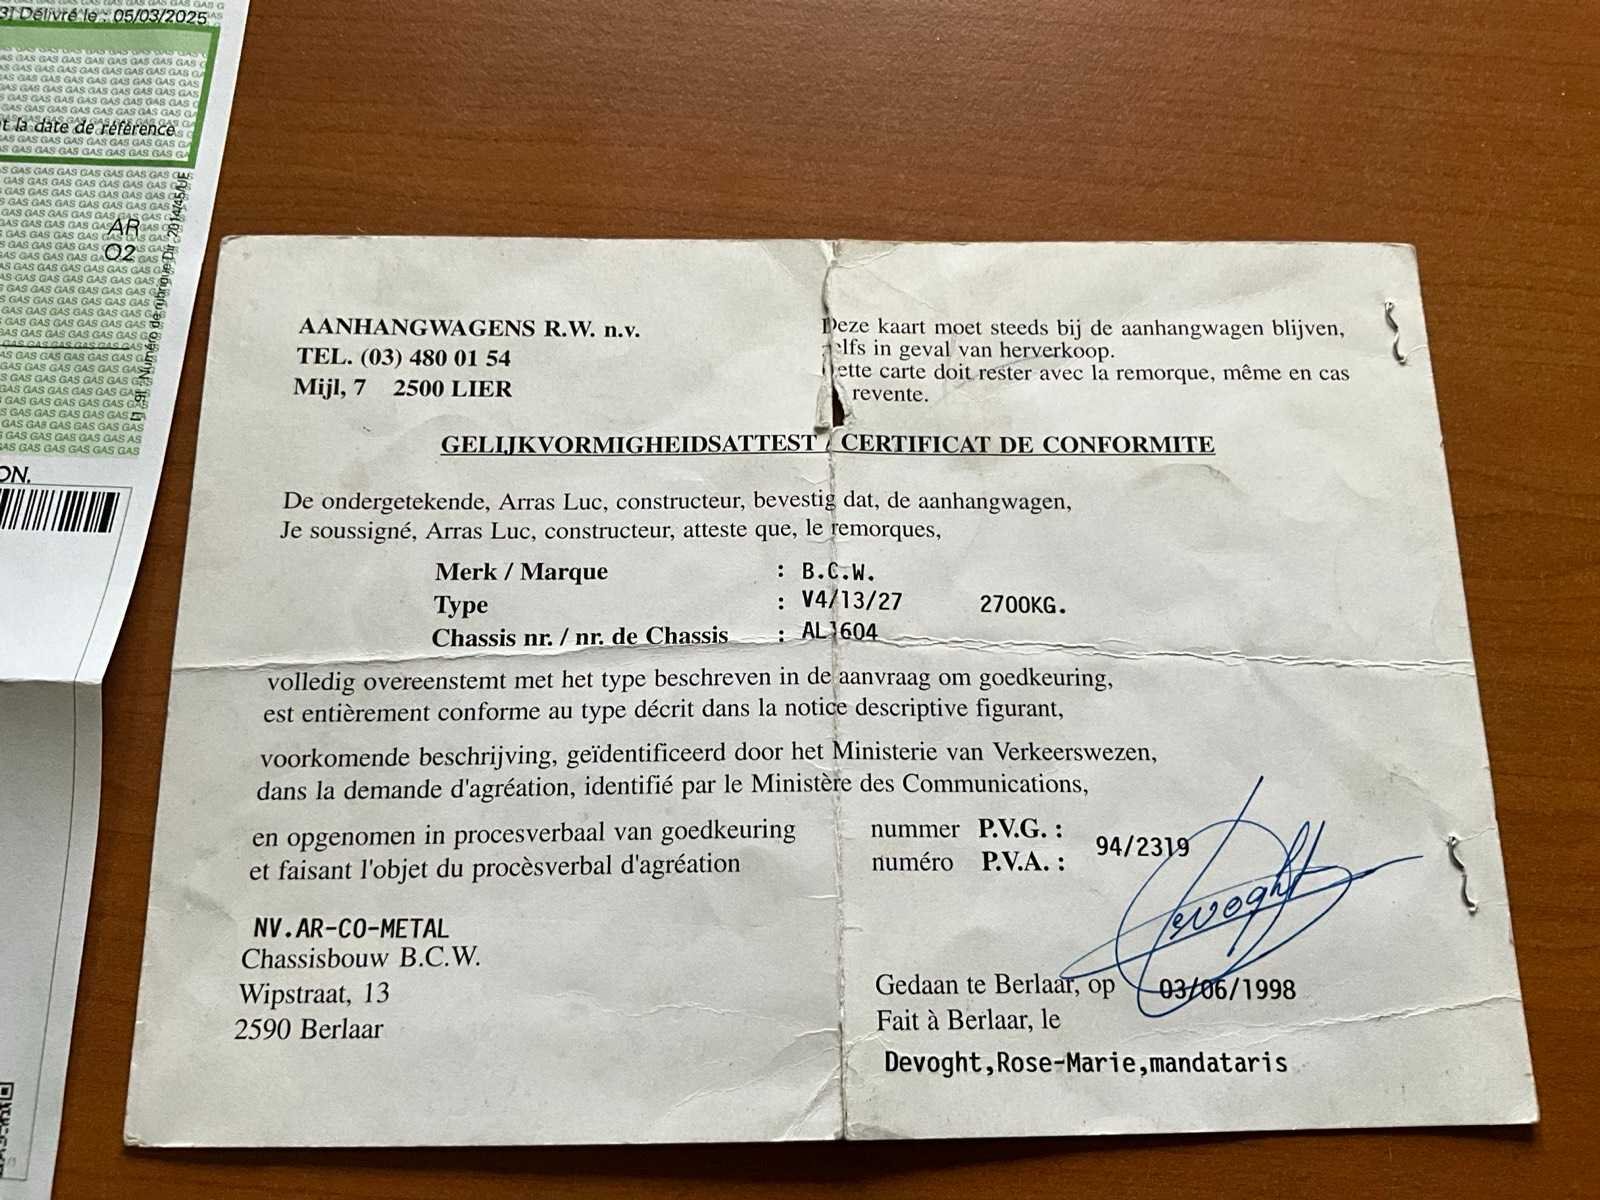 Délivré le : 05/03/2025
la date de référence
AR
O2
Numéro de rubrique Dir. 2014/45/UE
ON.
AANHANGWAGENS R.W. n.v.
TEL. (03) 480 01 54
Mijl, 7 2500 LIER
Deze kaart moet steeds bij de aanhangwagen blijven,
elfs in geval van herverkoop.
ette carte doit rester avec la remorque, même en cas
revente.
GELIJKVORMIGHEIDSATTEST / CERTIFICAT DE CONFORMITE
De ondergetekende, Arras Luc, constructeur, bevestig dat, de aanhangwagen,
Je soussigné, Arras Luc, constructeur, atteste que, le remorques,
Merk / Marque : B.C.W.
Type : V4/13/27 2700KG.
Chassis nr. / nr. de Chassis : AL1604
volledig overeenstemt met het type beschreven in de aanvraag om goedkeuring,
est entièrement conforme au type décrit dans la notice descriptive figurant,
voorkomende beschrijving, geïdentificeerd door het Ministerie van Verkeerswezen,
dans la demande d'agréation, identifié par le Ministère des Communications,
en opgenomen in procesverbaal van goedkeuring nummer P.V.G. :
et faisant l'objet du procèsverbal d'agréation numéro P.V.A. : 94/2319
Devoght
NV.AR-CO-METAL
Chassisbouw B.C.W.
Wipstraat, 13
2590 Berlaar
Gedaan te Berlaar, op 03/06/1998
Fait à Berlaar, le
Devoght,Rose-Marie,mandataris